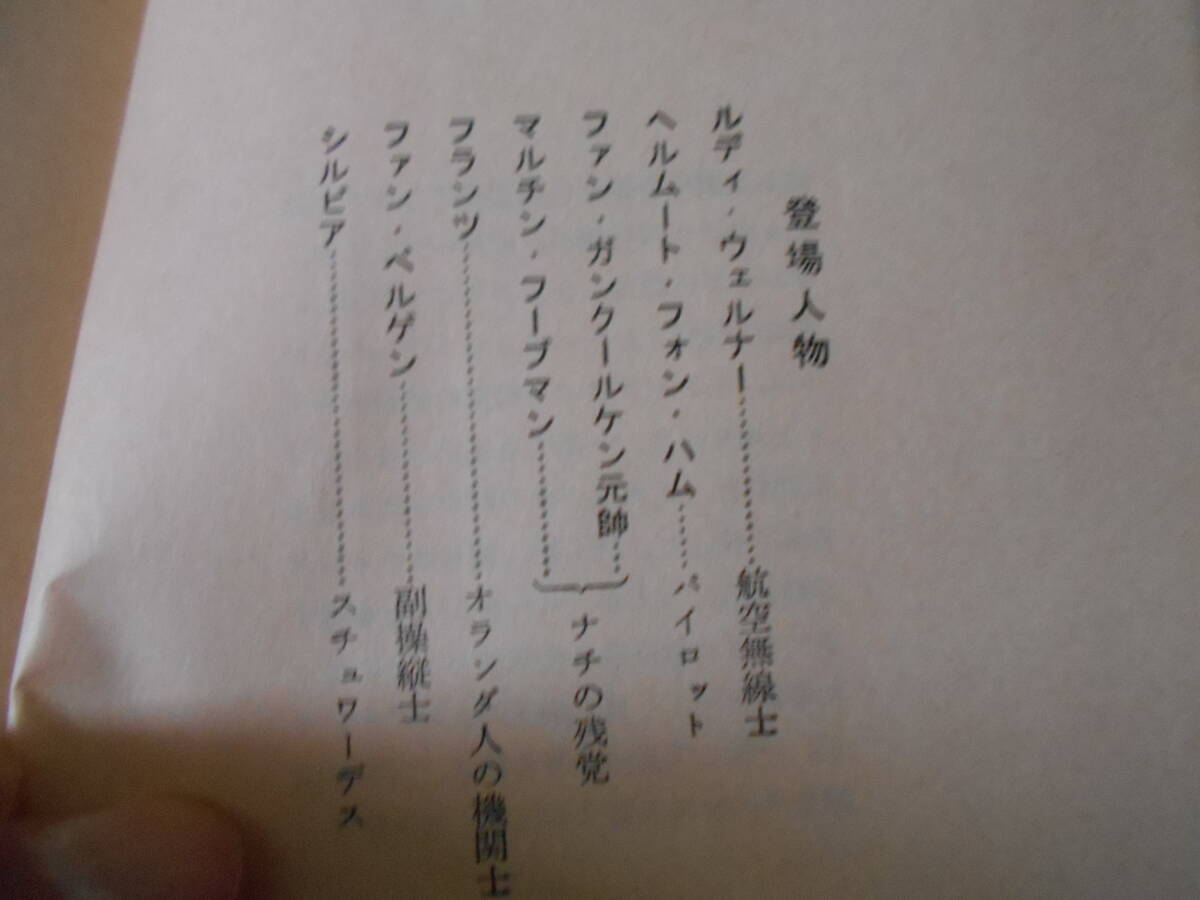 登場人物
ルディ・ヴェルナー…………航空無線士
ヘルムート・フォン・ハム……パイロット
ファン・ガンクールケン元帥…
マルチン・フーブマン…………
ナチの残党
フランツ…………………………オランダ人の機関士
ファン・ベルゲン………………副操縦士
シルビア…………………………スチュワーデス